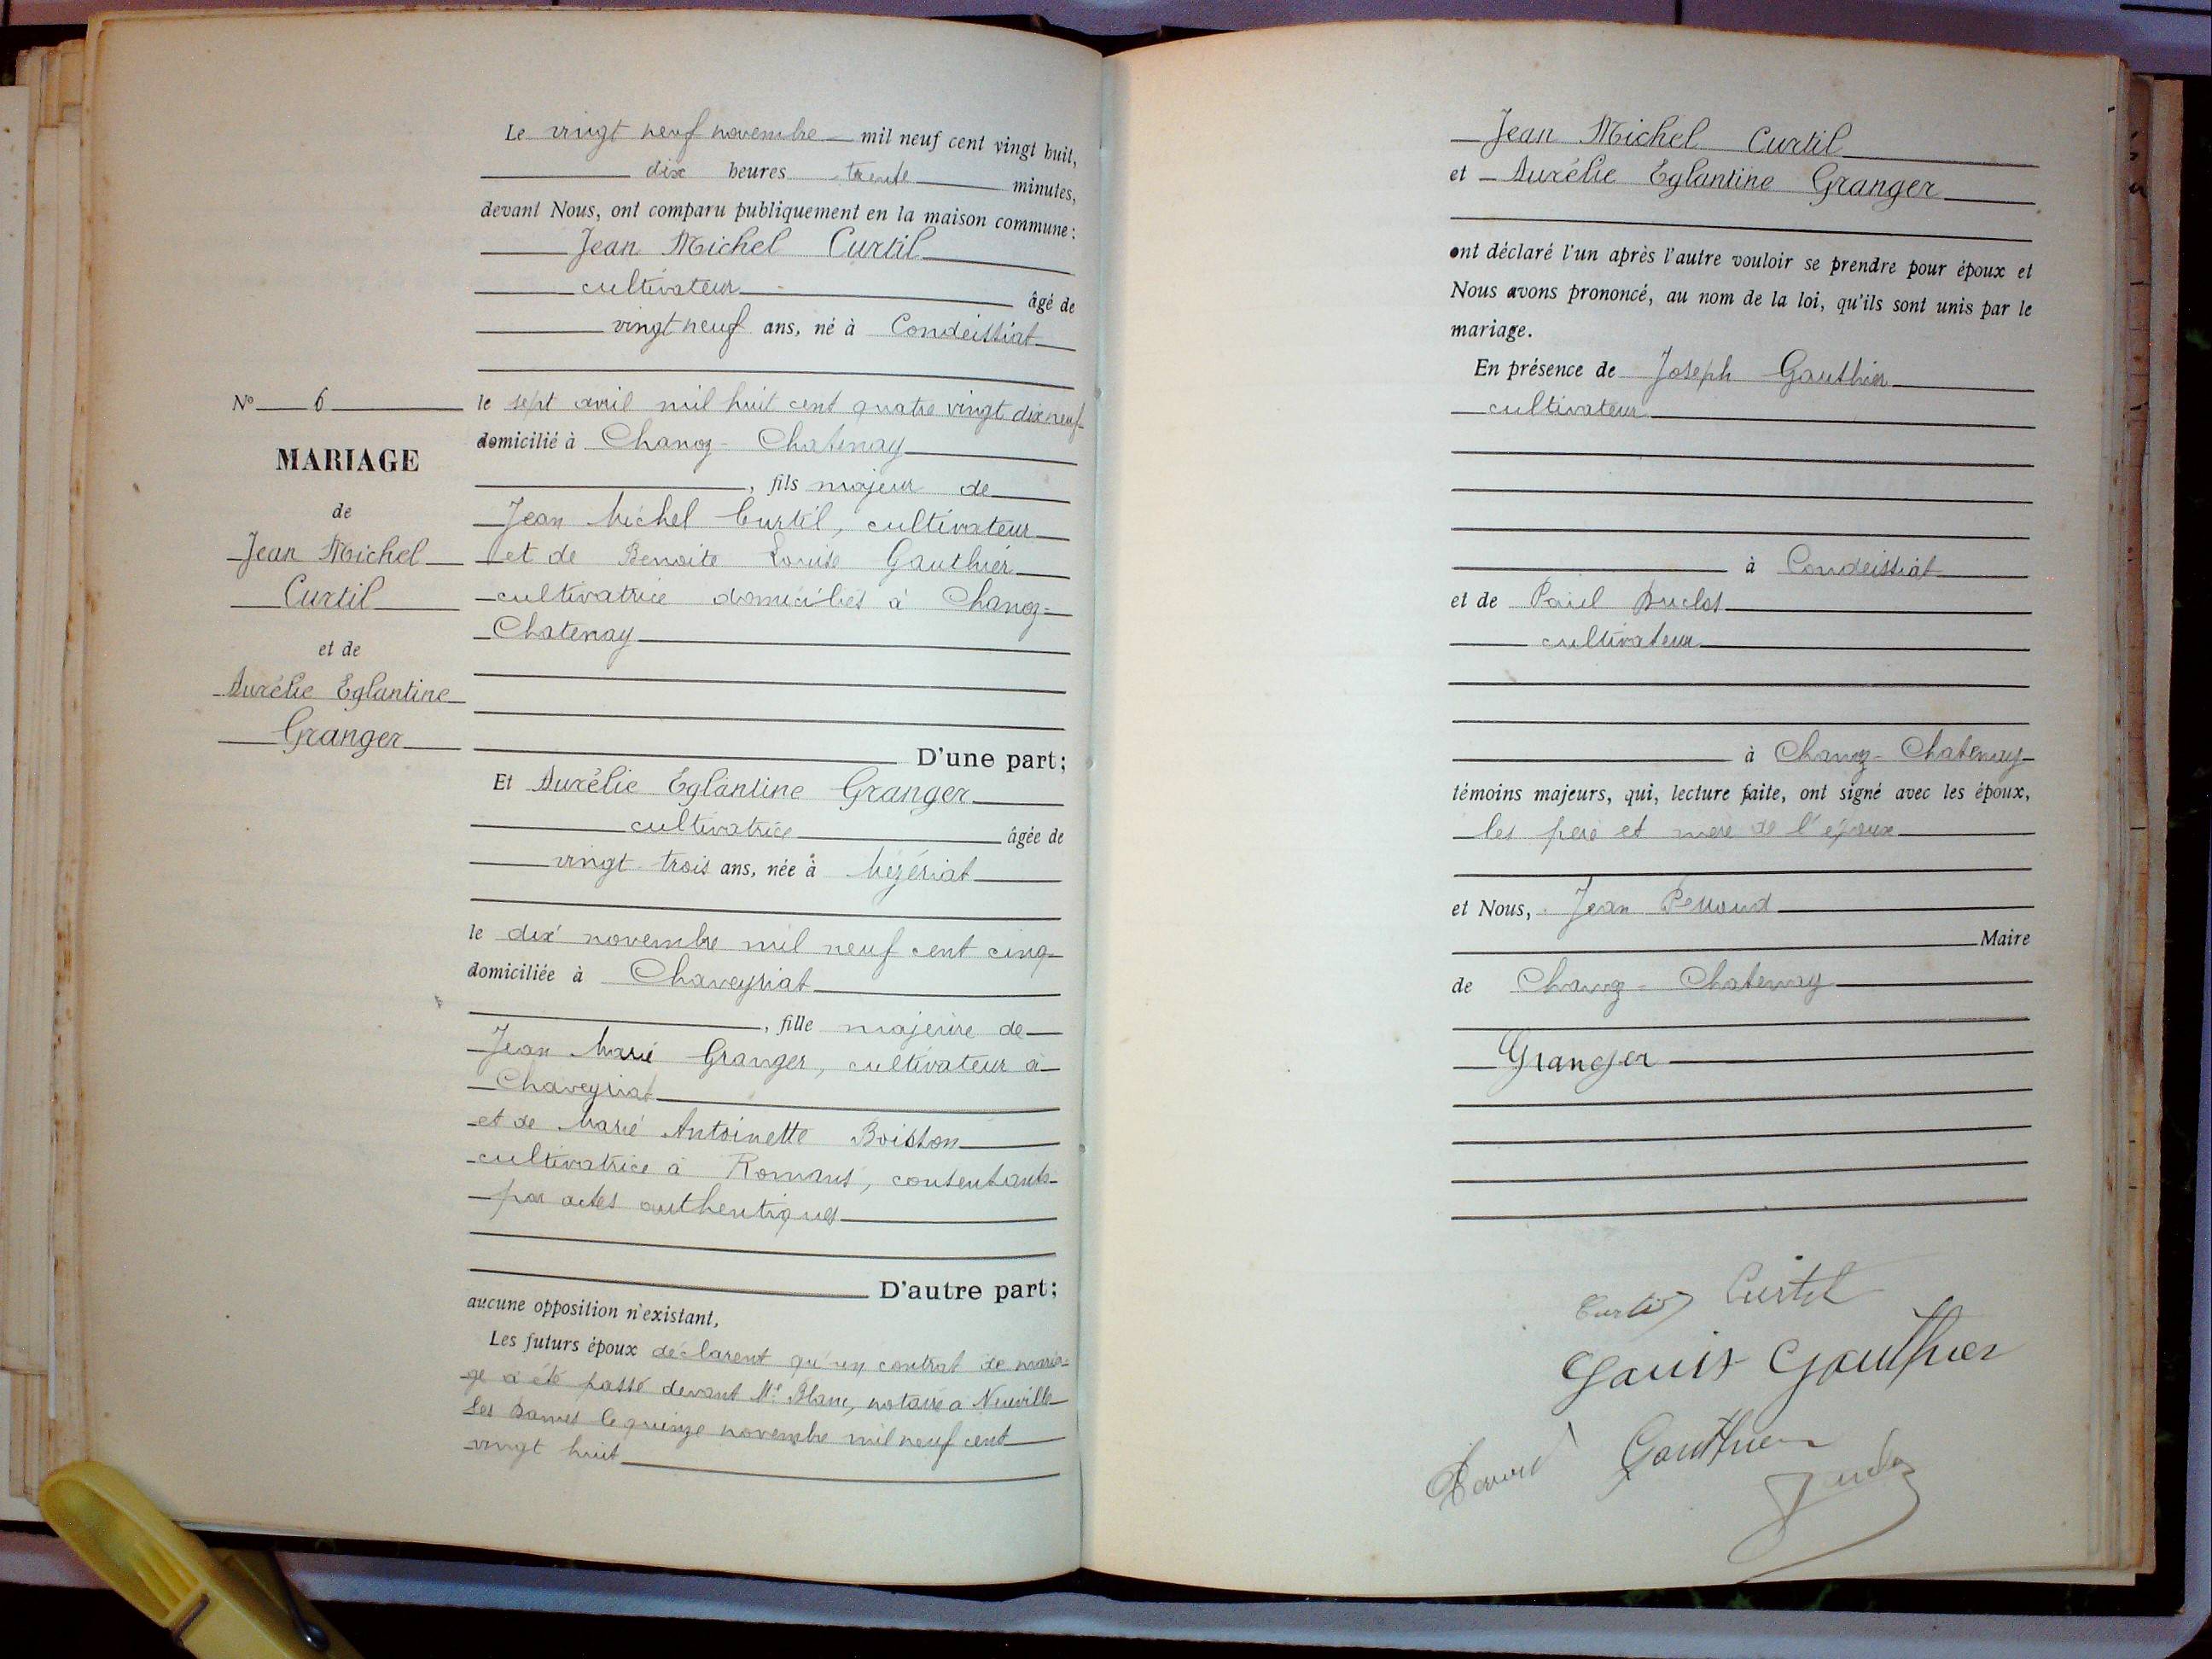 Le vingt neuf novembre mil neuf cent vingt huit,
dix heures trente minutes,
devant Nous, ont comparu publiquement en la maison commune :
Jean Michel Curtil
cultivateur âgé de
vingt neuf ans, né à Condeissiat
le sept avril mil huit cent quatre vingt dix neuf
domicilié à Chanoz-Chatenay
, fils majeur de
Jean Michel Curtil, cultivateur
et de Benoite Louise Gauthier
cultivatrice domiciliés à Chanoz-
Chatenay
D'une part;
Et Aurélie Eglantine Granger
cultivatrice âgée de
vingt-trois ans, née à Mézériat
le dix novembre mil neuf cent cinq
domiciliée à Chaveyriat
, fille majeure de
Jean Marie Granger, cultivateur à
Chaveyriat
et de Marie Antoinette Boisson
cultivatrice à Romans, consentants
par actes authentiques
D'autre part;
aucune opposition n'existant,
Les futurs époux déclarent qu'un contrat de maria-
ge a été passé devant Me Blanc, notaire a Neuville
les Dames le quinze novembre mil neuf cent
vingt huit
No 6
MARIAGE
de
Jean Michel
Curtil
et de
Aurélie Eglantine
Granger
Jean Michel Curtil
et Aurélie Eglantine Granger
ont déclaré l'un après l'autre vouloir se prendre pour époux et
Nous avons prononcé, au nom de la loi, qu'ils sont unis par le
mariage.
En présence de Joseph Gauthier
cultivateur
à Condeissiat
et de Paul Duclos
cultivateur
à Chanoz-Chatenay
témoins majeurs, qui, lecture faite, ont signé avec les époux,
les père et mère de l'époux
et Nous, Jean Perroud
Maire
de Chanoz-Chatenay
Granger
Curtil Curtil
Gauthier
Gauthier